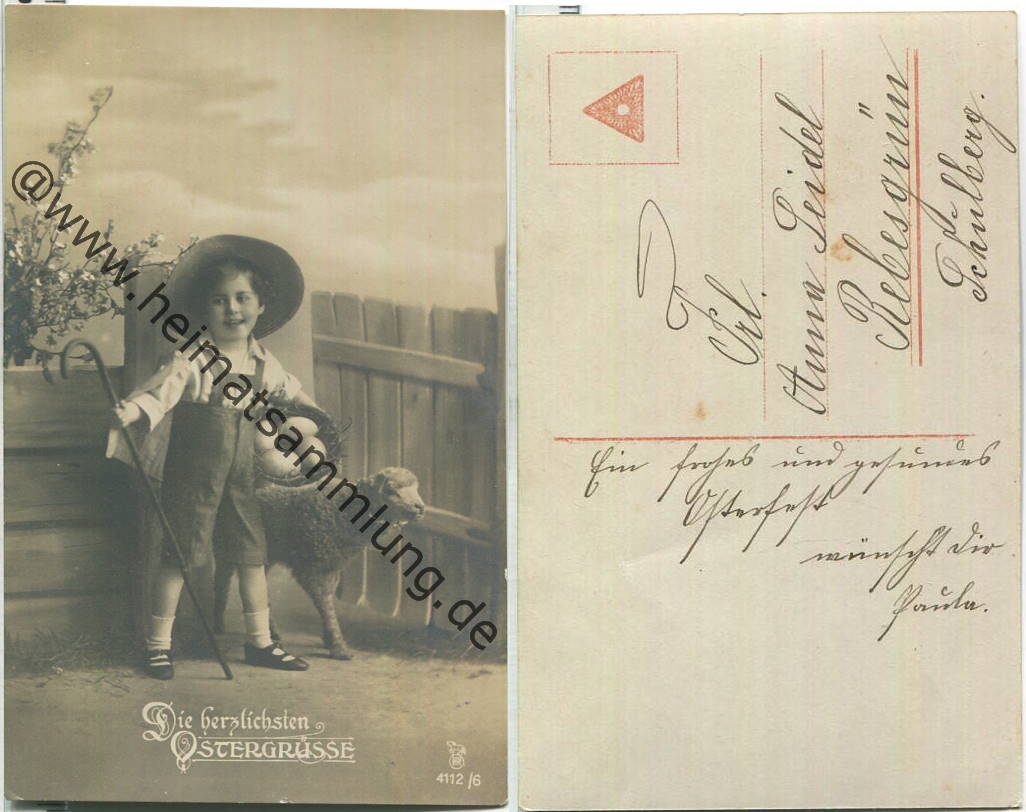 @www.heimatsammlung.de
Die herzlichsten
OSTERGRÜSSE
4112/6
Frl.
Anna Seidel
Rebesgrün
Schulberg.
Ein frohes und gesundes
Osterfest
wünscht Dir
Paula.